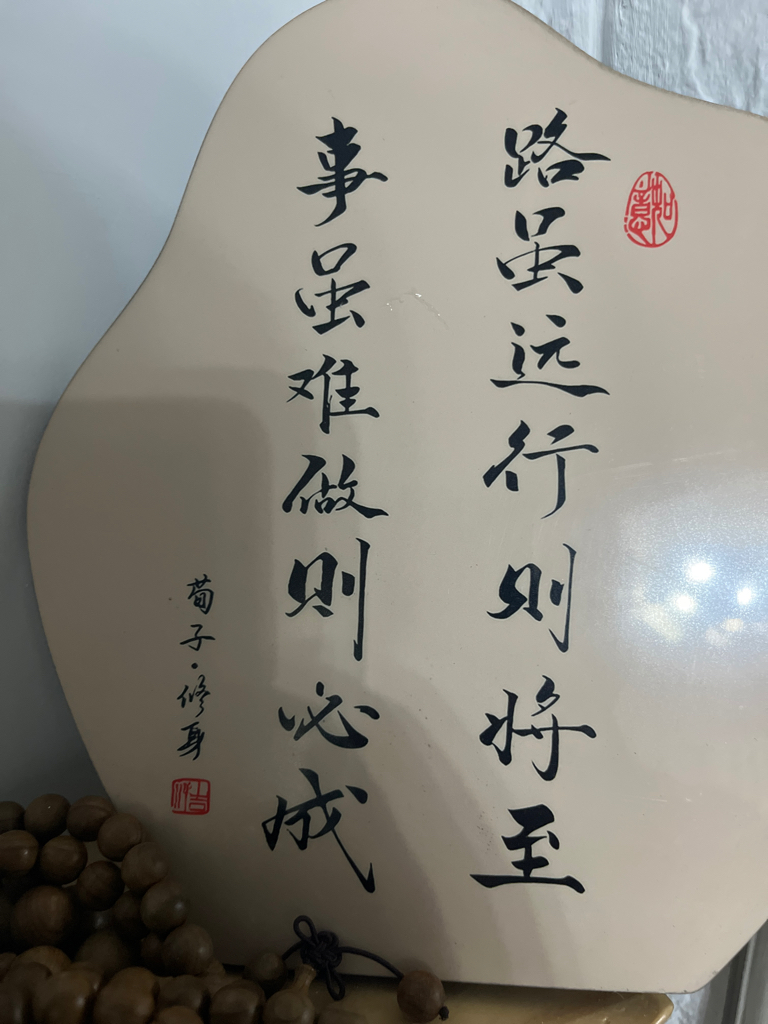 如意
路虽远行则将至
事虽难做则必成
荀子·修身